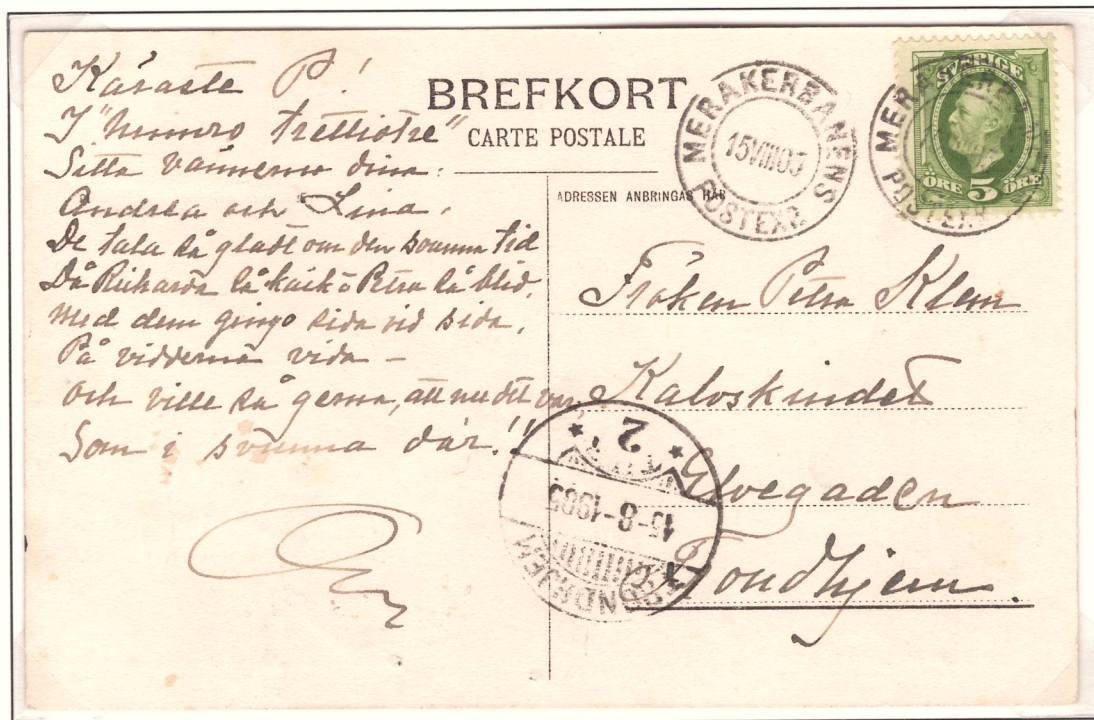 Käraste P!
I "Numro trettiotre"
Sitta vännerna dina:
Andrea och Lina,
De tala så gladt om den svunna tid
Då Rickarda så käck o Petra så blid,
Med dem gingo sida vid sida,
På vidderna vida —
och ville så gerna, att nu det var
Som i svunna dar!!
BREFKORT
CARTE POSTALE
ADRESSEN ANBRINGAS HÄR
MERAKERBANENS
15VIII05
POSTEXP.
SVERIGE
ÖRE 5 ÖRE
MERAKERBANENS
POSTEXP.
Fröken Petra Klem
Kalvskindet
Elvegaden
Trondhjem.
TRONDHJEM
15-8-1905
2